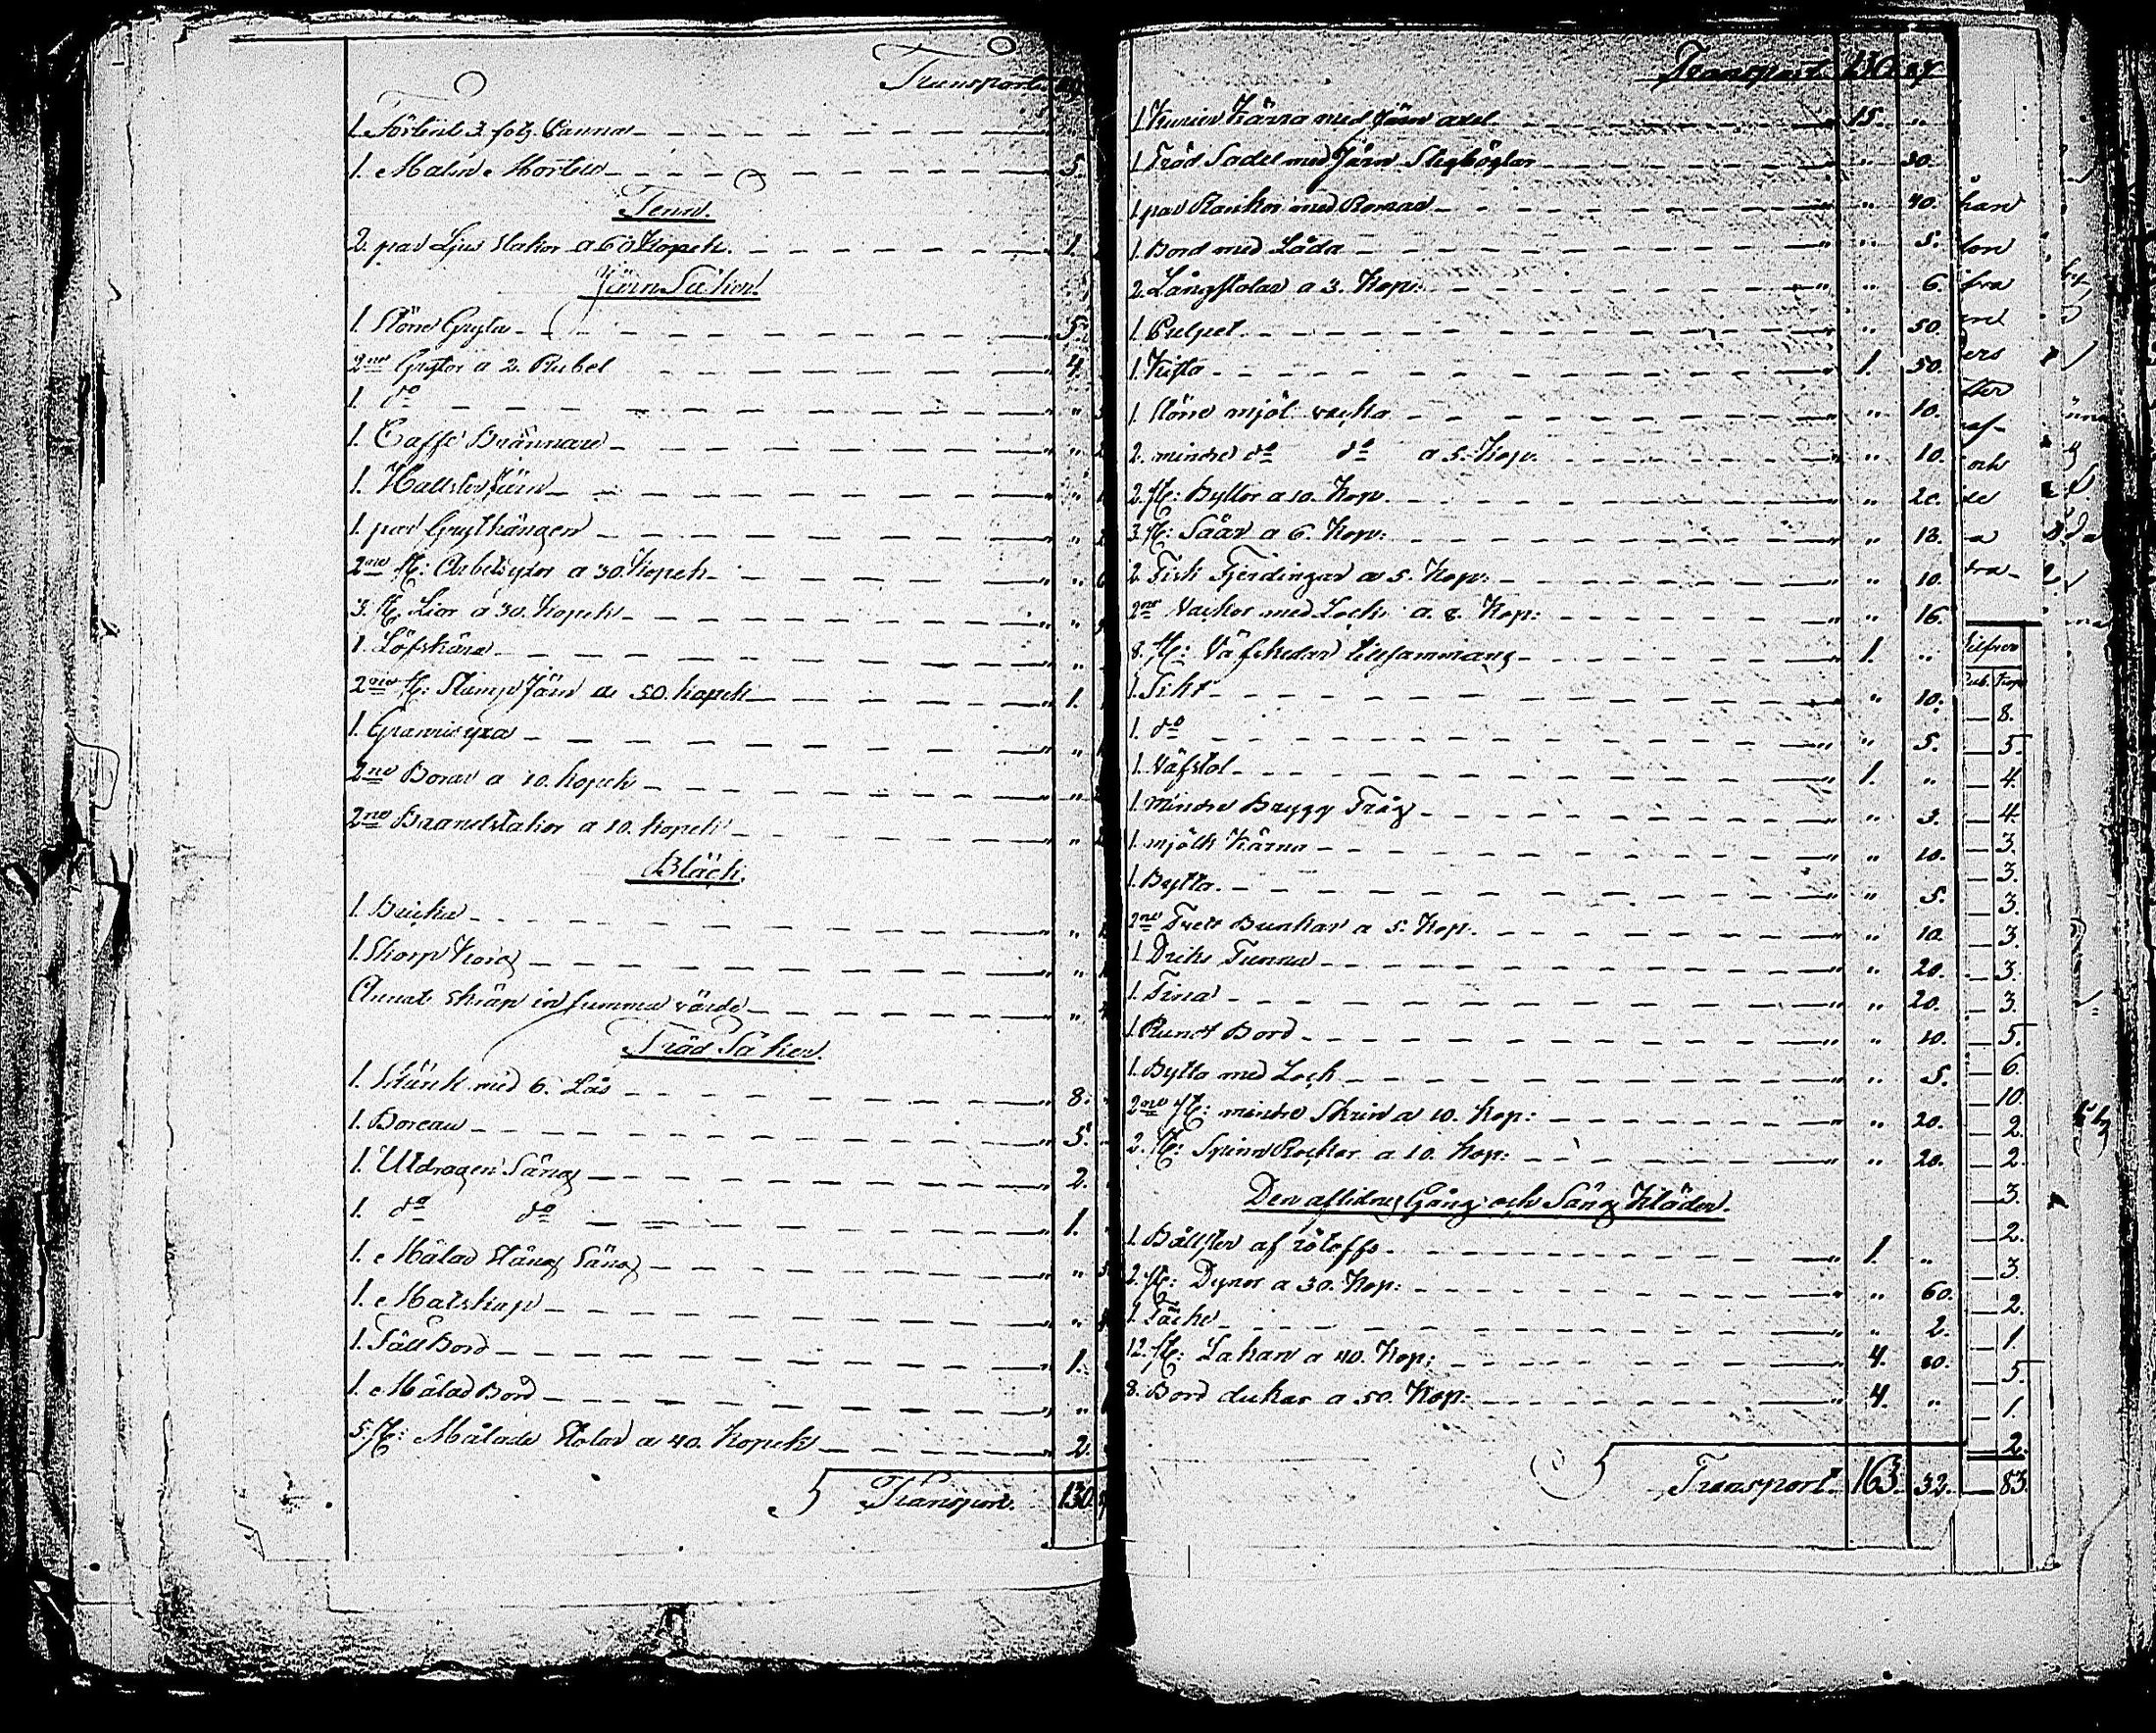 Transport
1. Förtent 3. fotz. Panna 
1. Malm Mortel 5.
Tenn.
2. par Ljus stakor a 60 Kopek. 1.
Järn Saker.
1. Störe Gryta 5.
2ne Grytor a 2. Rubel 4.
1. do "
1. Caffe Brännare "
1. Hallster Järn "
1. par Grythängen "
2ne st: Arbetsyxor a 30. Kopek "
3. st. Liar a 30. Kopek "
1. Löfskära "
2ne st: Stämp Järn a 50. kopek 1.
1. yxa "
2ne Borar a 10. kopek "
2ne Brandstakor a 10. kopek "
Bläck.
1. Bricka "
1. Skorp Korg "
Annat skräp in summa värde "
Träd Saker.
1. Skänk med 6. Lås 8.
1. Boreau 5.
1. Utdragen Säng 2.
1. do do 1.
1. Målad Stäng Säng "
1. Matskåp "
1. Fäll Bord 1.
1. Målad Bord "
5. st: Målade Stolar a 40. Kopek 2.
Transport. 130.
Transport 130. 27
1. Kurier Kärra med Järn axel 15. "
1. Träd Sadel med Järn Stigböglar " 30.
1. par Rankor med Remar " 40.
1. Bord med Låda " 5.
2. Långstolar a 3. Kop: " 6.
1. Pulpet " 50.
1. Kista 1. 50.
1. Störe mjöl vacka " 10.
2. mindre do do a 5. Kop. " 10.
2. st: Byttor a 10. Kop. " 20.
3. st: Såår a 6. Kop: " 18.
2. Fisk Fjerdingar a 5. Kop: " 10.
2ne Vackor med Lock a. 8. Kop: " 16.
8. st: Väfskedar tillsammans 1. "
1. Sikt " 10.
1. do " 5.
1. Väfstol 1. "
1. mindre Brygg Tråg " 3.
1. mjölk Kärna " 10.
1. Bytta. " 5.
2ne Trätt Bunkar a 5. Kop. " 10.
1. Dricks Tunna " 20.
1. Tina " 20.
1. Rundt Bord " 10.
1. Bytta med Lock " 5.
2ne st: mindre Skrin a 10. Kop: " 20.
2. st: Spinn Rockar a 10. Kop: " 20.
Den aflidnes Gång och Säng Kläder.
1. Bållster af 1. "
2. st: Dynor a 30. Kop: " 60.
1. Täcke " 2.
12. st: Lakan a 40. Kop: 4. 80.
8. Bord dukar a 50. Kop: 4. "
Transport 163. 32.
Silfver
Rub. Kop
8.
5.
4.
4.
3.
3.
3.
3.
3.
3.
5.
6.
10.
2.
2.
3.
2.
3.
2.
1.
5.
1.
2.
83.